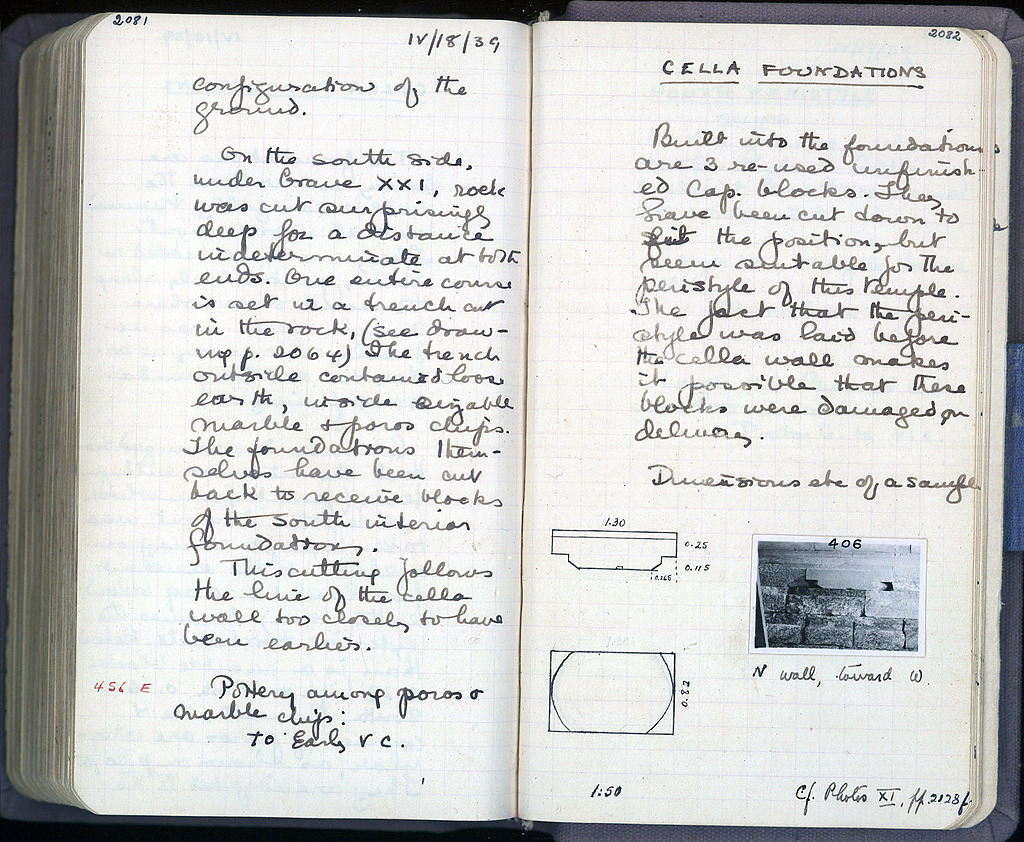 2081
IV/18/39
configuration of the
ground.
On the south side,
under Grave XXI, rock
was cut surprisingly
deep for a distance
indeterminate at both
ends. One entire course
is set in a trench cut
in the rock, (see draw-
ing p. 2064) The trench
outside contained loose
earth, inside sizable
marble & poros chips.
The foundations them-
selves have been cut
back to receive blocks
of the south interior
foundations.
This cutting follows
the line of the cella
wall too closely to have
been earlier.
456 E
Pottery among poros &
marble chips:
To Early V C.
2082
CELLA FOUNDATIONS
Built into the foundations
are 3 re-used unfinish-
ed Cap. blocks. They
have been cut down to
fit the position, but
seem suitable for the
peristyle of this temple.
The fact that the peri-
style was laid before
the cella wall makes
it possible that these
blocks were damaged on
delivery.
Dimensions etc of a sample
1.30
0.25
0.115
0.265
406
1.30
0.82
N wall, toward W.
1:50
Cf. Photos XI, pp. 2128f.